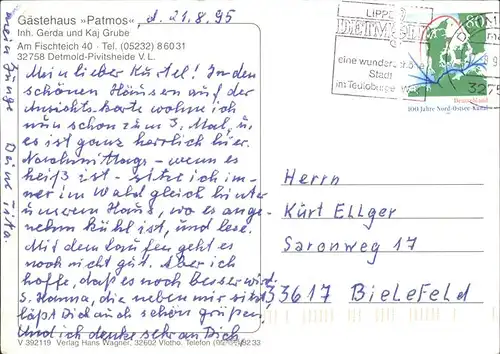 Gästehaus »Patmos«, d. 21.8.95
Inh. Gerda und Kaj Grube
Am Fischteich 40 · Tel. (05232) 8 60 31
32758 Detmold-Pivitsheide V. L.
Mein lieber Kurtel! In den
schönen Häusern auf der
Ansichtskarte wohne ich
nun schon zum 3. Mal, u.
es ist ganz herrlich hier.
Nachmittags - wenn es
heiß ist - sitze ich im-
mer im Wald gleich hinter
unserem Haus, wo es ange-
nehm kühl ist, und lese.
Mit dem Laufen geht es
noch nicht gut. Aber ich
hoffe, daß es noch besser wird.
S. Hanna, die neben mir sitzt,
läßt Dich auch schön grüßen.
Und ich denke sehr an Dich,
mein Junge
Deine
V 392119 Verlag Hans Wagner, 32602 Vlotho, Telefon
LIPPE
DETMOLD
eine wunderschöne
Stadt
im Teutoburger W
80
3275
Deutschland
100 Jahre Nord-Ostsee-Kanal
Herrn
Kurt Ellger
Saronweg 17
33617 Bielefeld